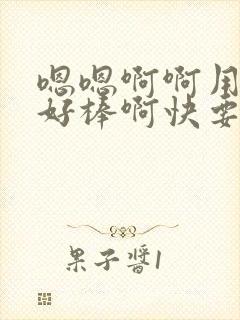 嗯嗯啊啊用
好棒啊快要
果子醬1